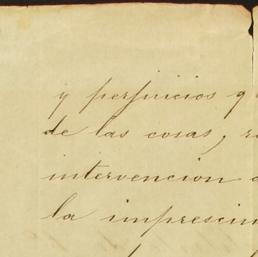 y perjuicios q
de las cosas, r
intervencion
la imprescin